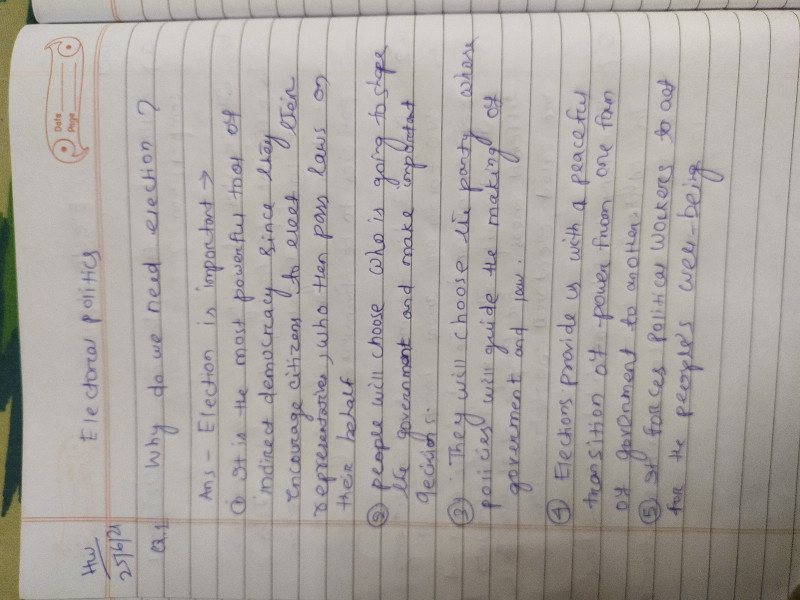 Date
Page
HW
25/6/21
Electoral politics
Q.1 Why do we need election ?
Ans - Election is important →
① It is the most powerful tool of
indirect democracy since they
encourage citizens to elect their
representative, who then pass laws on
their behalf
② people will choose who is going to shape
the government and make important
decisions.
③ They will choose the party whose
policies will guide the making of
government and law.
④ Elections provide us with a peaceful
transition of power from one form
of government to another.
⑤ It forces political workers to act
for the people's well-being